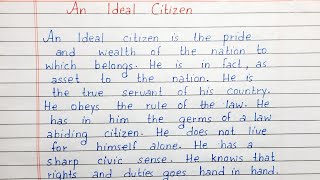 An Ideal Citizen
An Ideal citizen is the pride
and wealth of the nation to
which belongs. He is in fact, as
asset to the nation. He is
the true servant of his country.
He obeys the rule of the law. He
has in him the germs of a law
abiding citizen. He does not live
for himself alone. He has a
sharp civic sense. He knows that
rights and duties goes hand in hand.